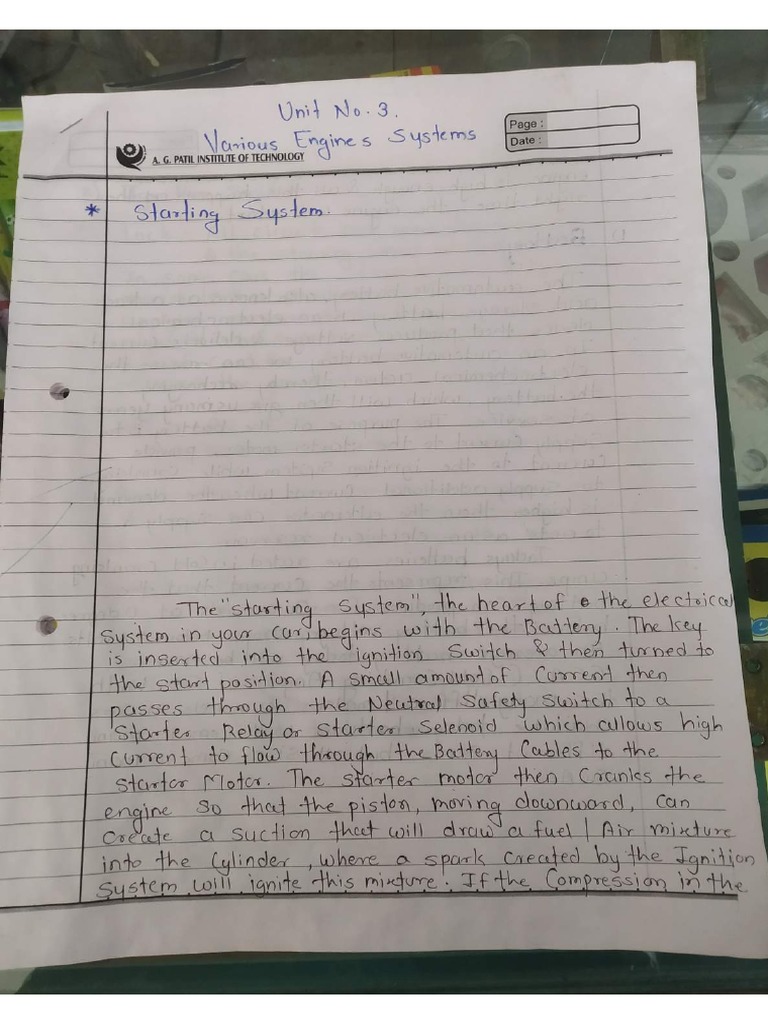 Unit No. 3.
Various Engines Systems
Page :
Date :
A. G. PATIL INSTITUTE OF TECHNOLOGY
* Starting System.
The "starting System", the heart of the electrical
System in your car, begins with the Battery. The key
is inserted into the ignition Switch & then turned to
the start position. A small amount of Current then
passes through the Neutral Safety Switch to a
Starter Relay or Starter Selenoid which allows high
Current to flow through the Battery Cables to the
Starter Motor. The starter motor then Cranks the
engine so that the piston, moving downward, can
Create a suction that will draw a fuel / Air mixture
into the Cylinder, where a spark created by the Ignition
System will ignite this mixture. If the Compression in the